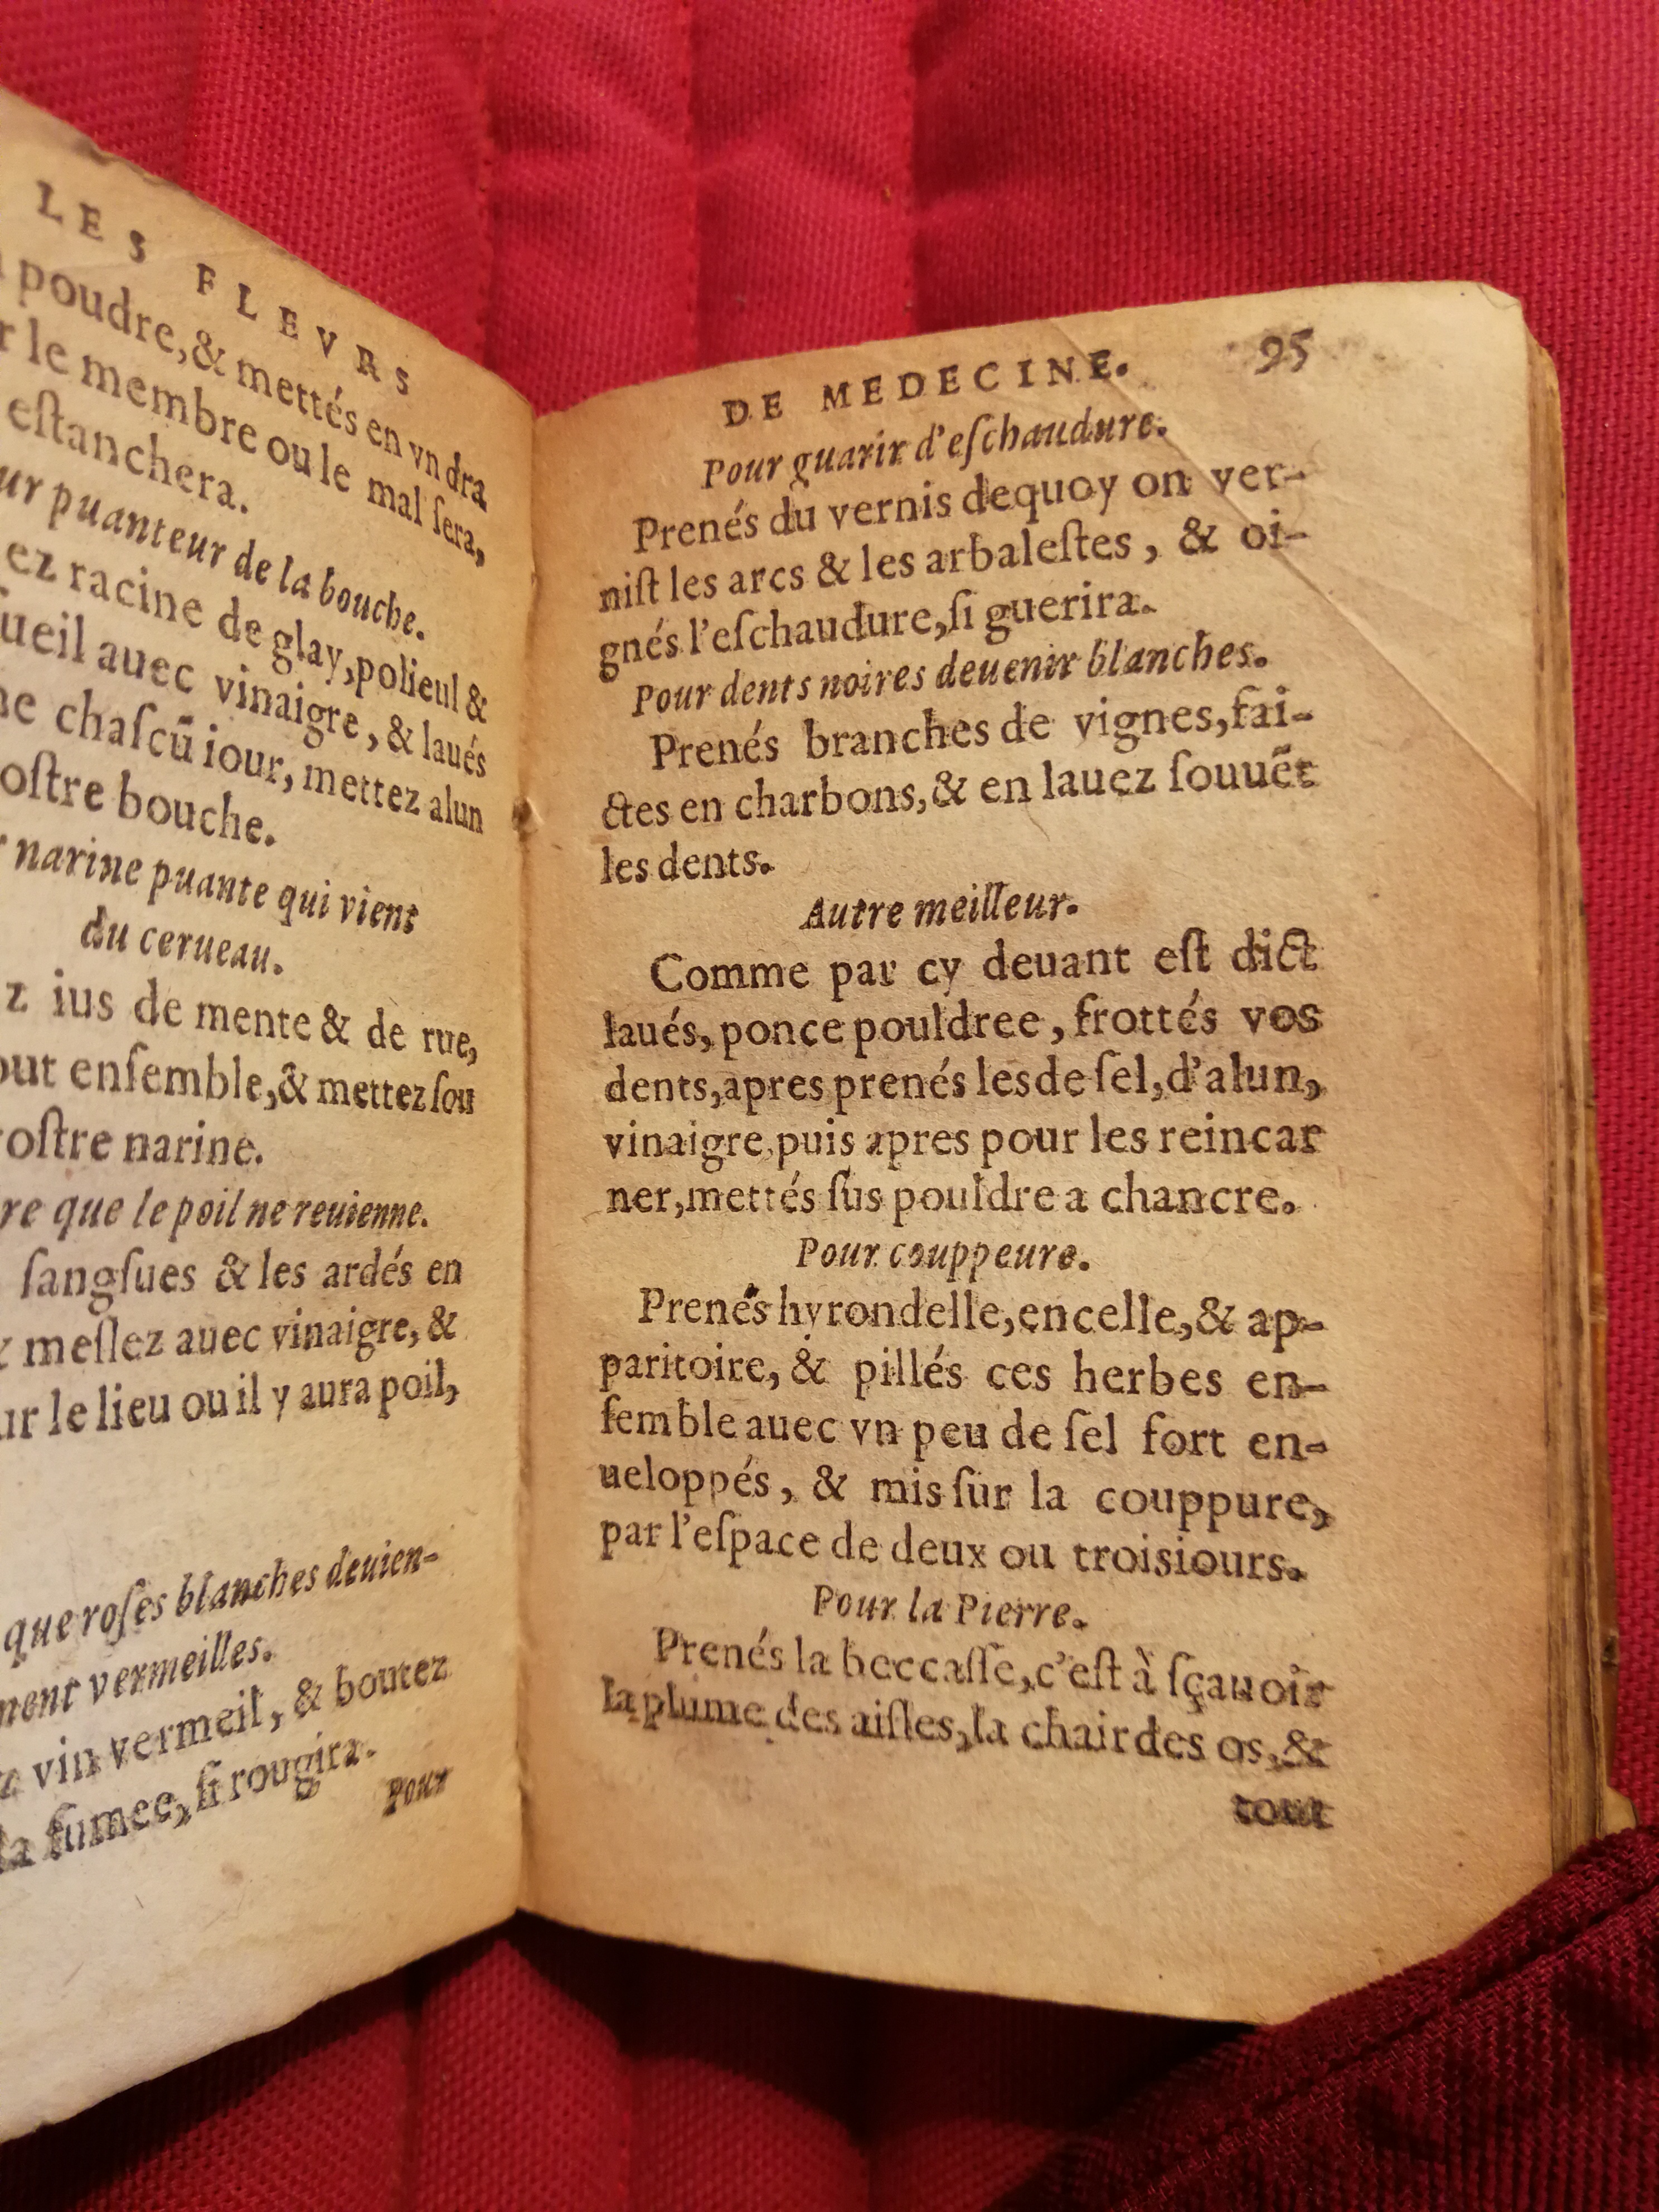 LES FLEVRS
poudre,& mettés en vn dra
le membre ou le mal ſera,
eſtanchera.
puanteur de la bouche.
racine de glay,polieul &
auec vinaigre, & laués
chaſcū iour, mettez alun
bouche.
narine puante qui vient
du cerueau.
ius de mente & de rue,
enſemble,& mettez ſou
narine.
que le poil ne reuienne.
ſangſues & les ardés en
meſlez auec vinaigre, &
le lieu ou il y aura poil,
que roſes blanches deuien-
vermeilles.
vin vermeil, & boutez
la fumee,ſi rougira.
Pour
DE MEDECINE. 95
Pour guarir d'eſchaudure.
Prenés du vernis dequoy on ver-
niſt les arcs & les arbaleſtes , & oi-
gnés l'eſchaudure,ſi guerira.
Pour dents noires deuenir blanches.
Prenés branches de vignes,fai-
ctes en charbons,& en lauez ſouuēt
les dents.
Autre meilleur.
Comme par cy deuant eſt dict
laués, ponce pouldree , frottés vos
dents,apres prenés les de ſel,d'alun,
vinaigre,puis apres pour les reincar
ner,mettés ſus pouldre a chancre.
Pour couppeure.
Prenés hyrondelle,encelle,& ap-
paritoire, & pillés ces herbes en-
ſemble auec vn peu de ſel fort en-
ueloppés , & mis ſur la couppure,
par l'eſpace de deux ou trois iours.
Pour la Pierre.
Prenés la beccaſſe,c'eſt à ſçauoir
la plume des aiſles,la chair des os,&
tout